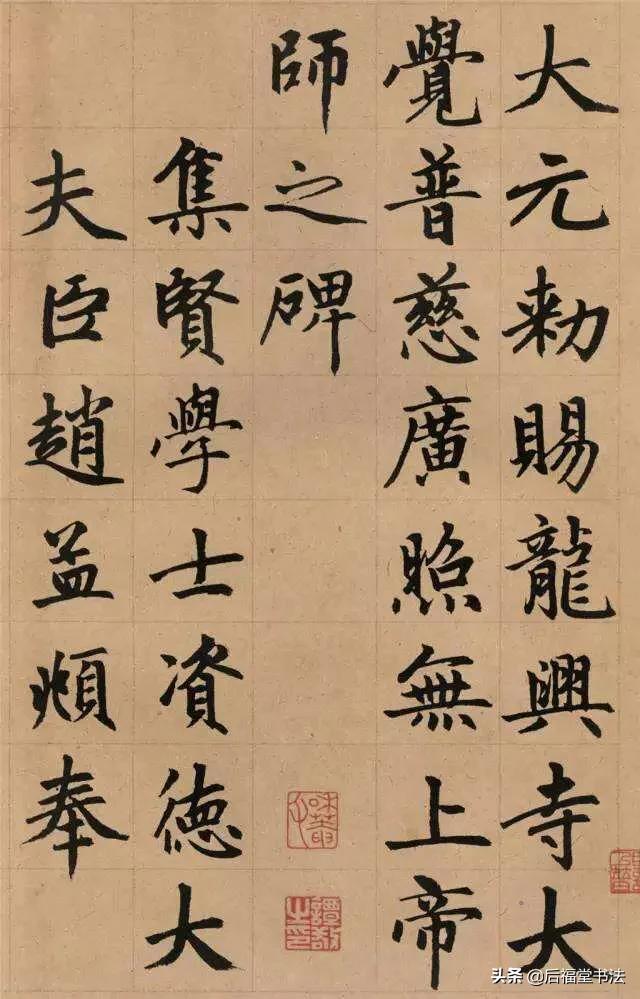 大元勑賜龍興寺大
覺普慈廣照無上帝
師之碑
集賢學士資德大
夫臣趙孟頫奉
譚敬之印
头条 @后福堂书法